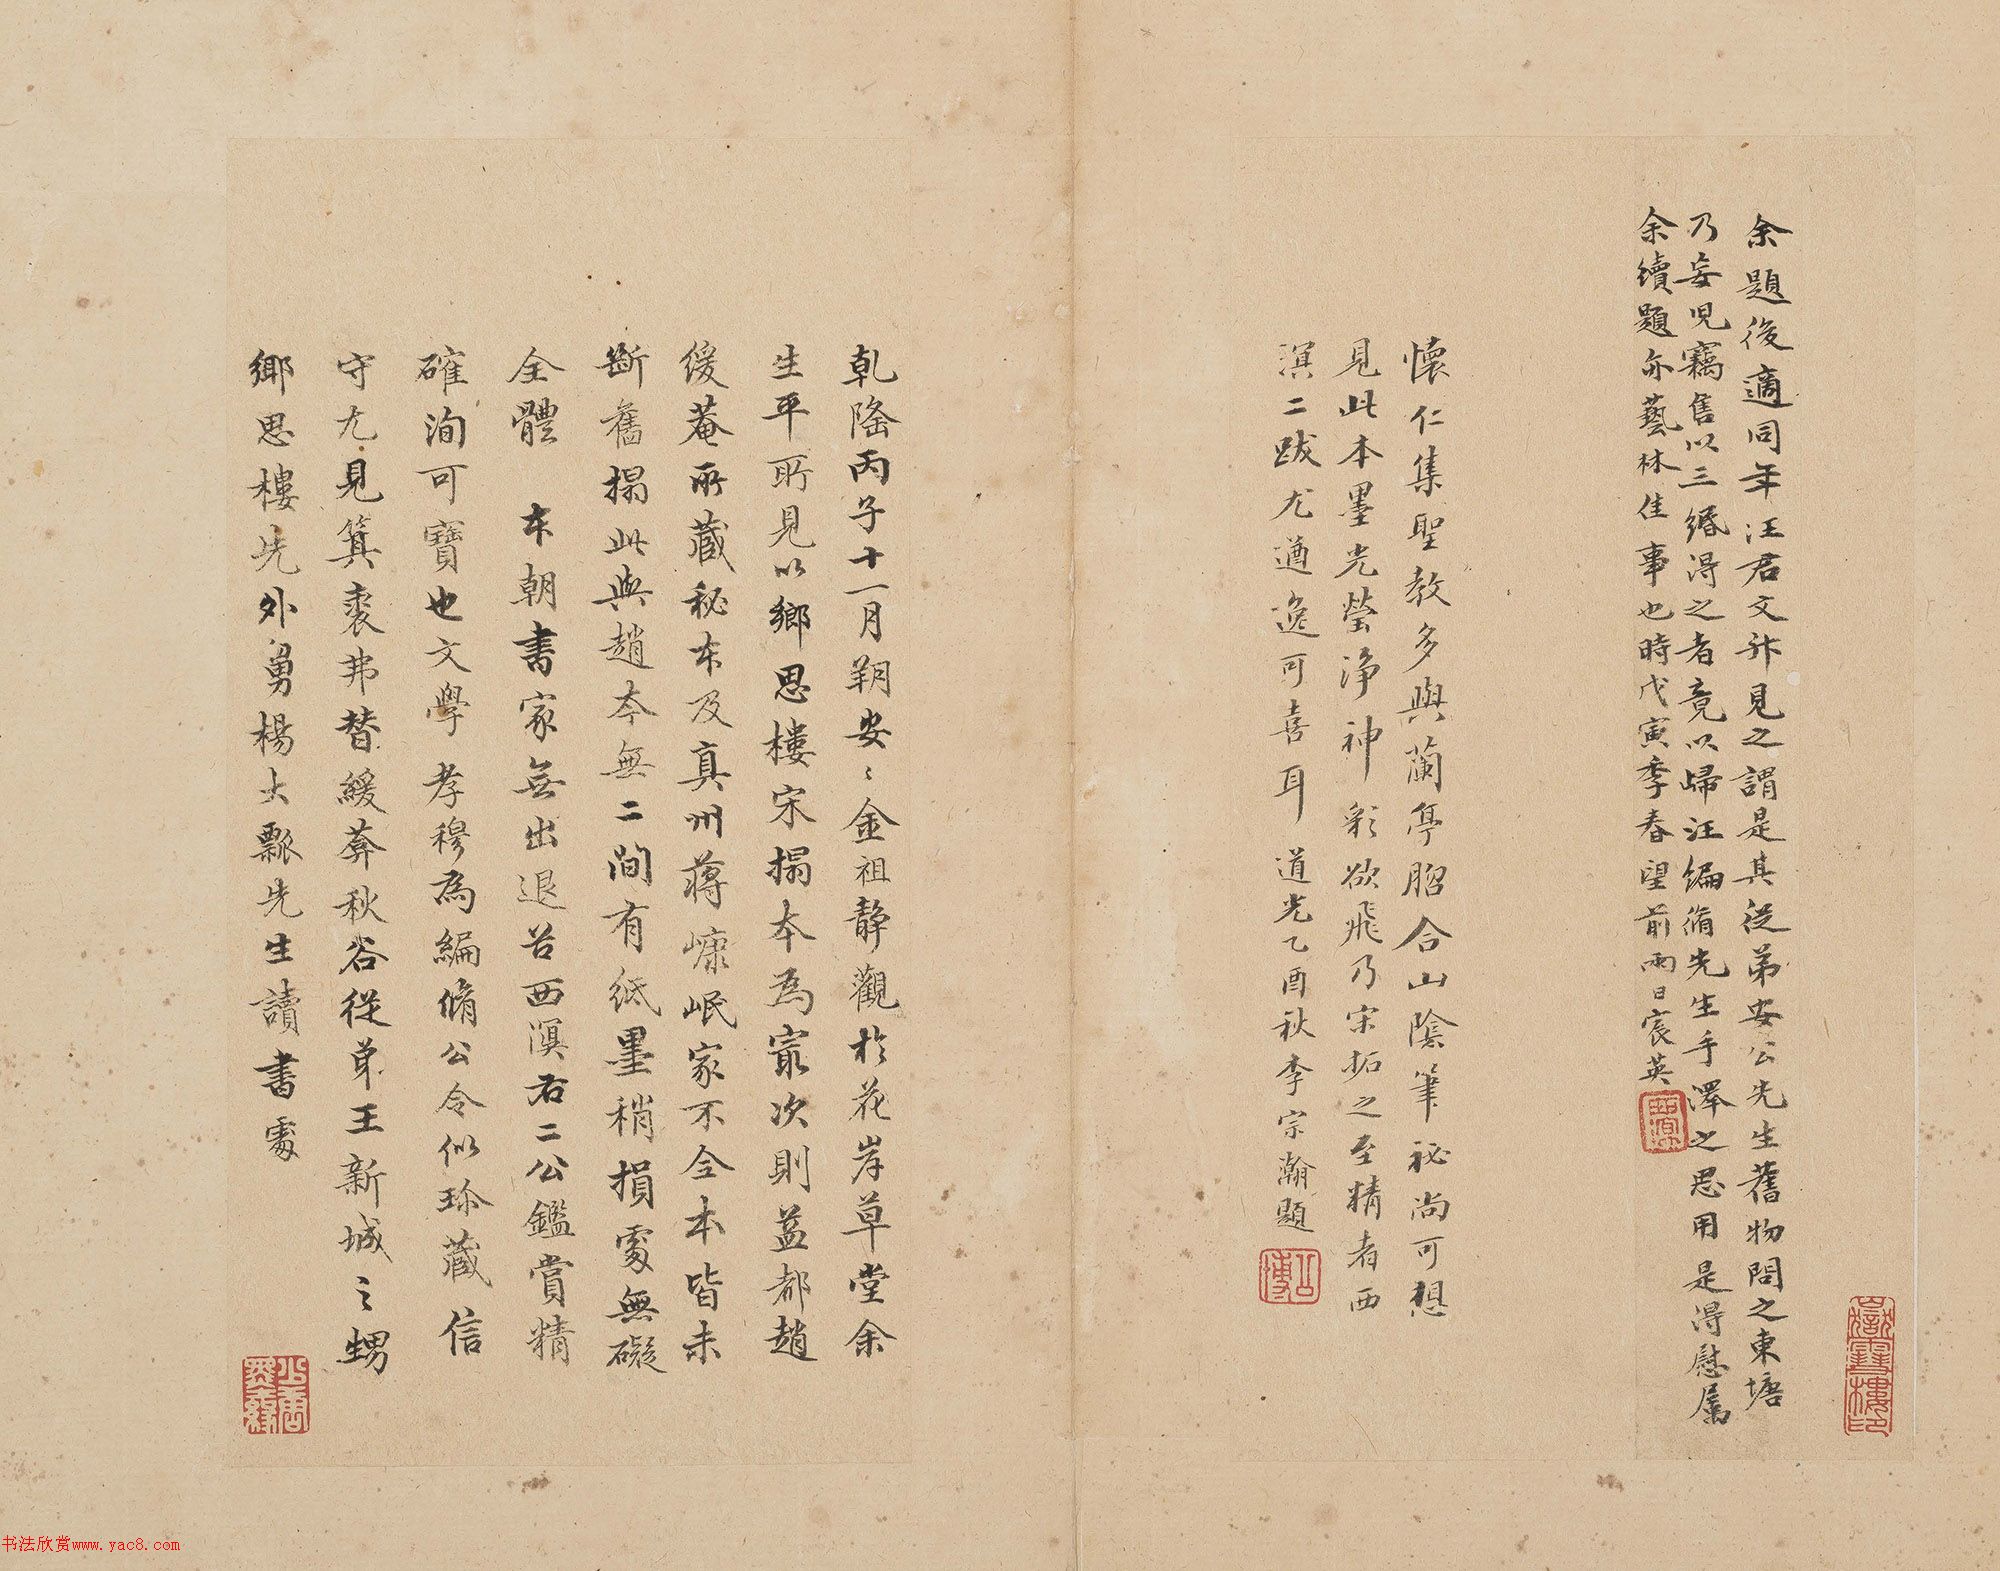 余題後適同年汪君文升見之謂是其從弟安公先生舊物問之東塘
乃妄児竊售以三緡得之者竟以歸汪編脩先生手澤之思用是得慰属
余續題亦藝林佳事也時戊寅季春望前兩日宸英
西溟
嶽雪樓印
懷仁集聖教多與蘭亭脗合山陰筆祕尚可想
見此本墨光瑩浄神彩欲飛乃宋拓之至精者西
溟二跋尤遒逸可喜耳 道光乙酉秋李宗瀚題
公博
乾隆丙子十一月朔安〻金祖静觀於花岸草堂余
生平所見以鄉思樓宋搨本為㝡次則益都趙
緩菴所藏秘本及真州蔣㠠岷家不全本皆未
斷舊搨此與趙本無二間有紙墨稍損處無礙
全體 本朝書家無出退谷西溟右二公鑑賞精
確洵可寶也文學孝穆為編脩公令似珍藏信
守尤見箕裘弗替緩葊秋谷從弟王新城之甥
鄉思樓先外舅楊大瓢先生讀書處
书法欣赏www.yac8.com